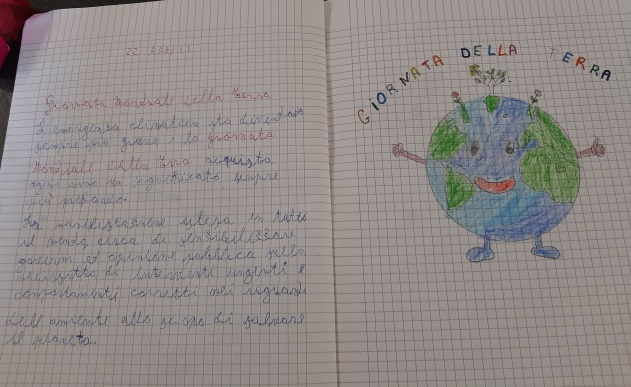 22 APRILE
Giornata Mondiale della Terra
L'emergenza climatica sta diventando
sempre più grave e la giornata
mondiale della Terra acquista
ogni anno un significato sempre
più profondo.
La manifestazione estesa in tutto
il mondo cerca di sensibilizzare
governi ed opinione pubblica sulla
necessità di interventi urgenti e
comportamenti corretti nei riguardi
dell'ambiente allo scopo di salvare
il pianeta.
GIORNATA DELLA TERRA